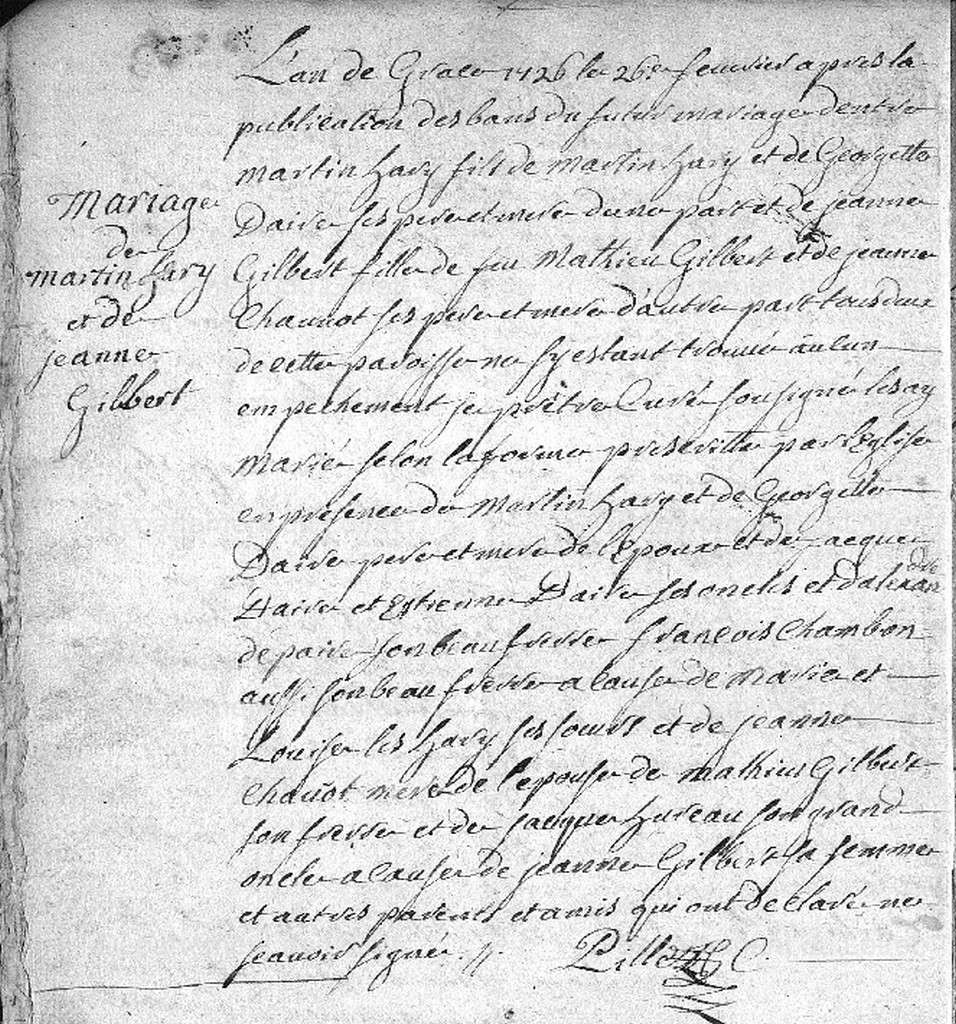 Mariage
de
martin hary
et de
jeanne
Gilbert
L'an de Grace 1726 le 26e feuvrier apres la
publication des bans du futur mariage dentre
martin hary fils de martin hary et de Georgette
Daire ses pere et mere dune part et de jeanne
Gilbert fille de feu Mathieu Gilbert et de jeanne
Chauuot ses pere et mere d'autre part tous deux
de cette paroisse ne sy estant trouué aucun
empechement je prêtre Curé soussigné les ay
Marié selon la forme prescritte par l'Eglise
en presence de Martin hary et de Georgette
Daire pere et mere de l'Epoux et de jacque
Daire et Estienne Daire ses oncles et dalexandre
depaire son beau frerre francois Chambon
aussi son beau frerre a cause de Marie et
Louise les hary ses soeurs et de jeanne
Chauot mere de l'epouse de mathieu Gilbert
son frerre et de jacque hureau son grand
oncle a cause de jeanne Gilbert sa femme
et autres parents et amis qui ont declaré ne
scauoir signer.